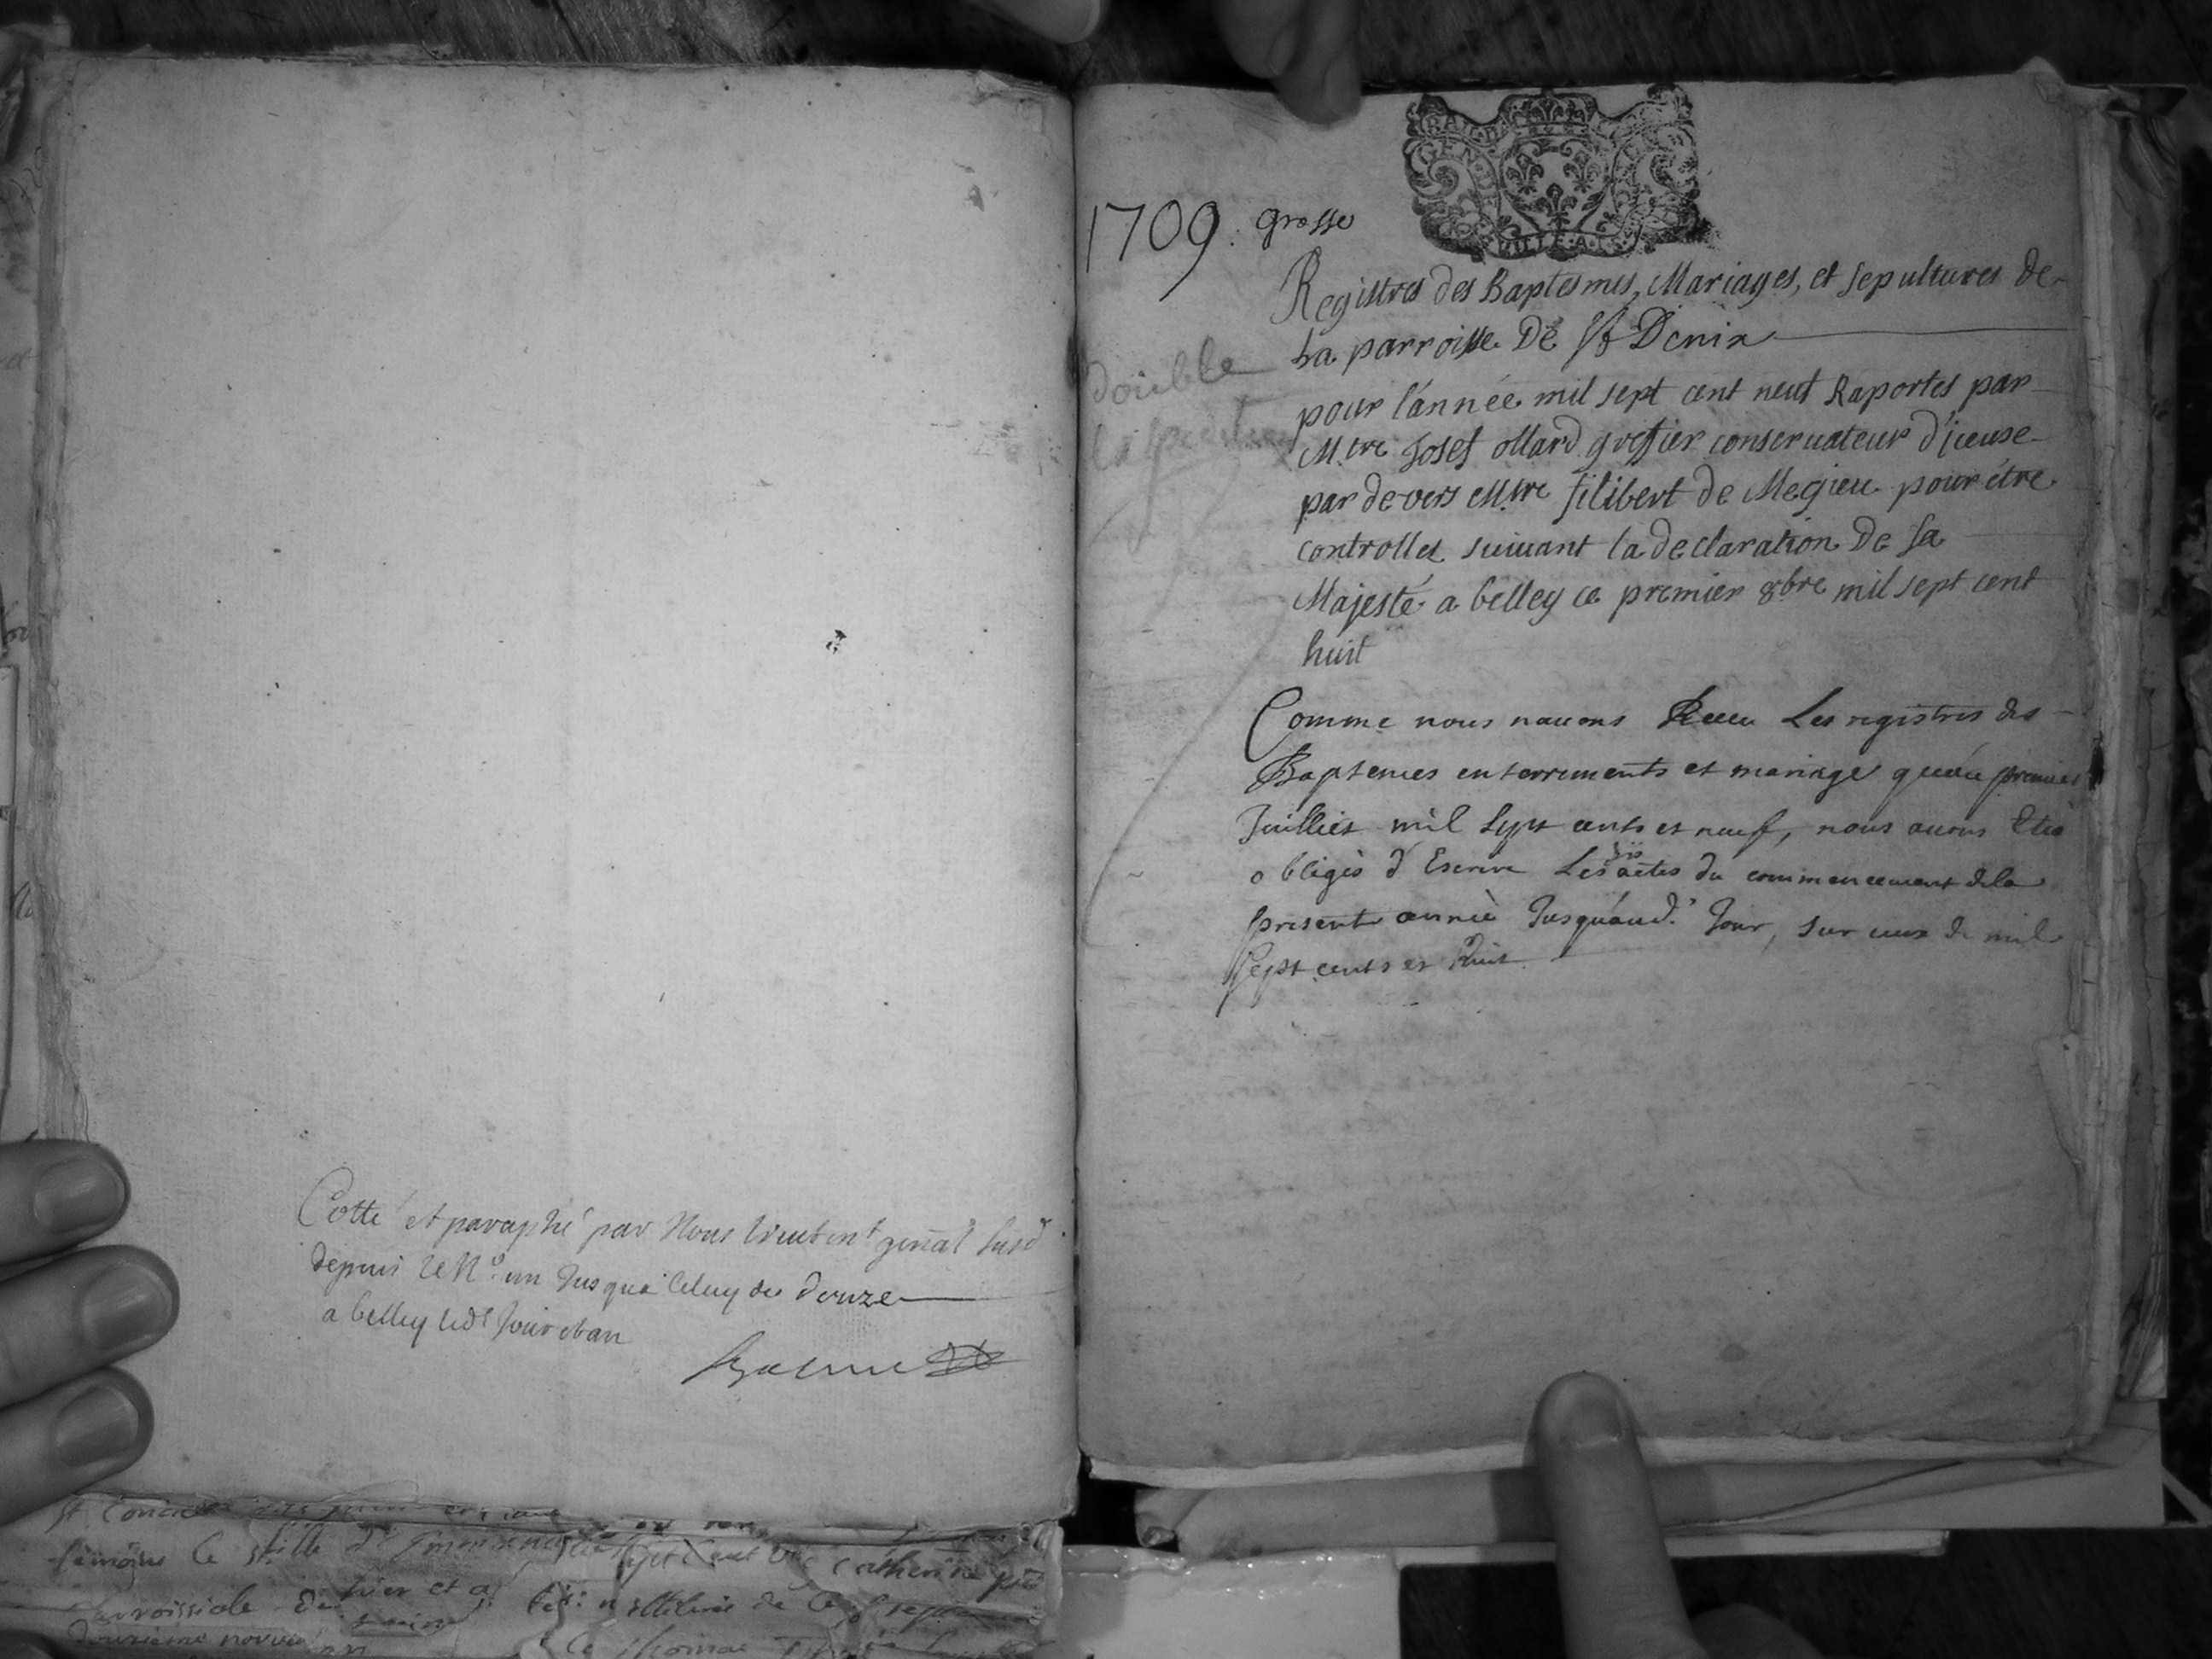 Cotté et paraphé par Nous Lieuten.t gñal susd.
depuis le N.o un Jusqua Celuy de douze
a belley led.t Jour et an
GEN DE
1709. grosse
Registres des Baptesmes, Mariages, et sepultures de
La parroisse De St Denix
double
pour l'année mil sept cent neuf Raportes par
M.tre Josef ollard greffier conservateur d'iceuse
par devers M.tre filibert de Megieu pour être
controlles suivant la declaration De sa
Majesté a belley ce premier 8bre mil sept cent
huit
Comme nous navons Receu Les registres des
Baptemes enterrements et mariage qu'au premier
Juilliet mil sept cents et neuf, nous avons Etés
obligés d'Escrire Les dis actes du commencement dela
present anneé Jusqu'aud.t Jour, sur ceux de mil
sept cents et huit
temoins
Catherine
parroissiale